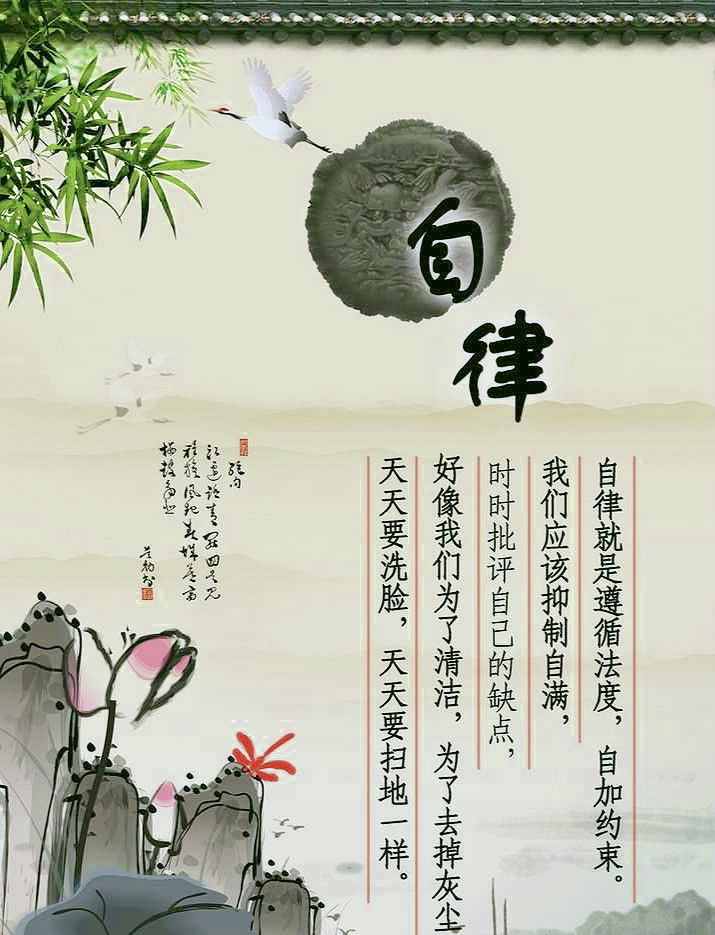 自
律
自律就是遵循法度，自加约束。
我们应该抑制自满，
时时批评自己的缺点，
好像我们为了清洁，为了去掉灰尘
天天要洗脸，天天要扫地一样。